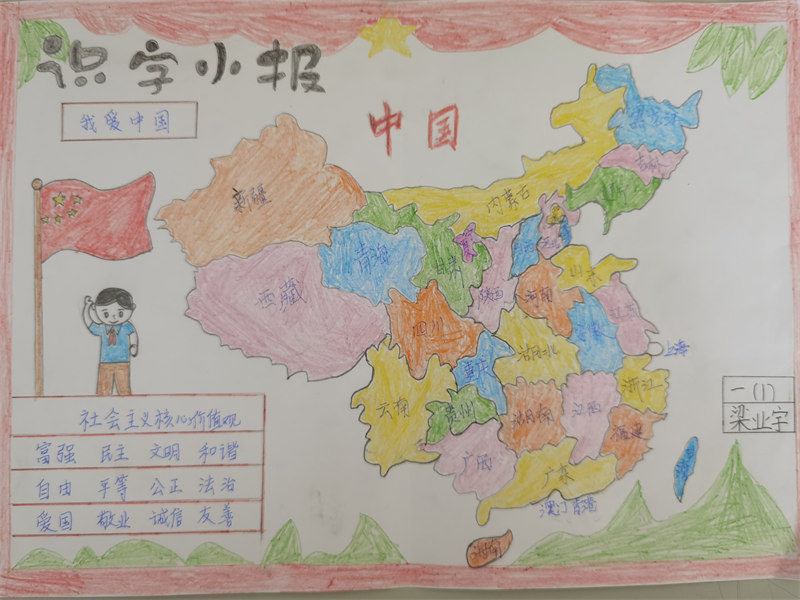 识字小报
我爱中国
中国
黑龙江
吉林
内蒙古
新疆
青海
甘肃
西藏
陕西
河南
山东
江苏
四川
重庆
湖北
上海
浙江
云南
贵州
湖南
江西
福建
广西
广东
澳门 香港
海南
一(1)
梁业宇
社会主义核心价值观
富强 民主 文明 和谐
自由 平等 公正 法治
爱国 敬业 诚信 友善